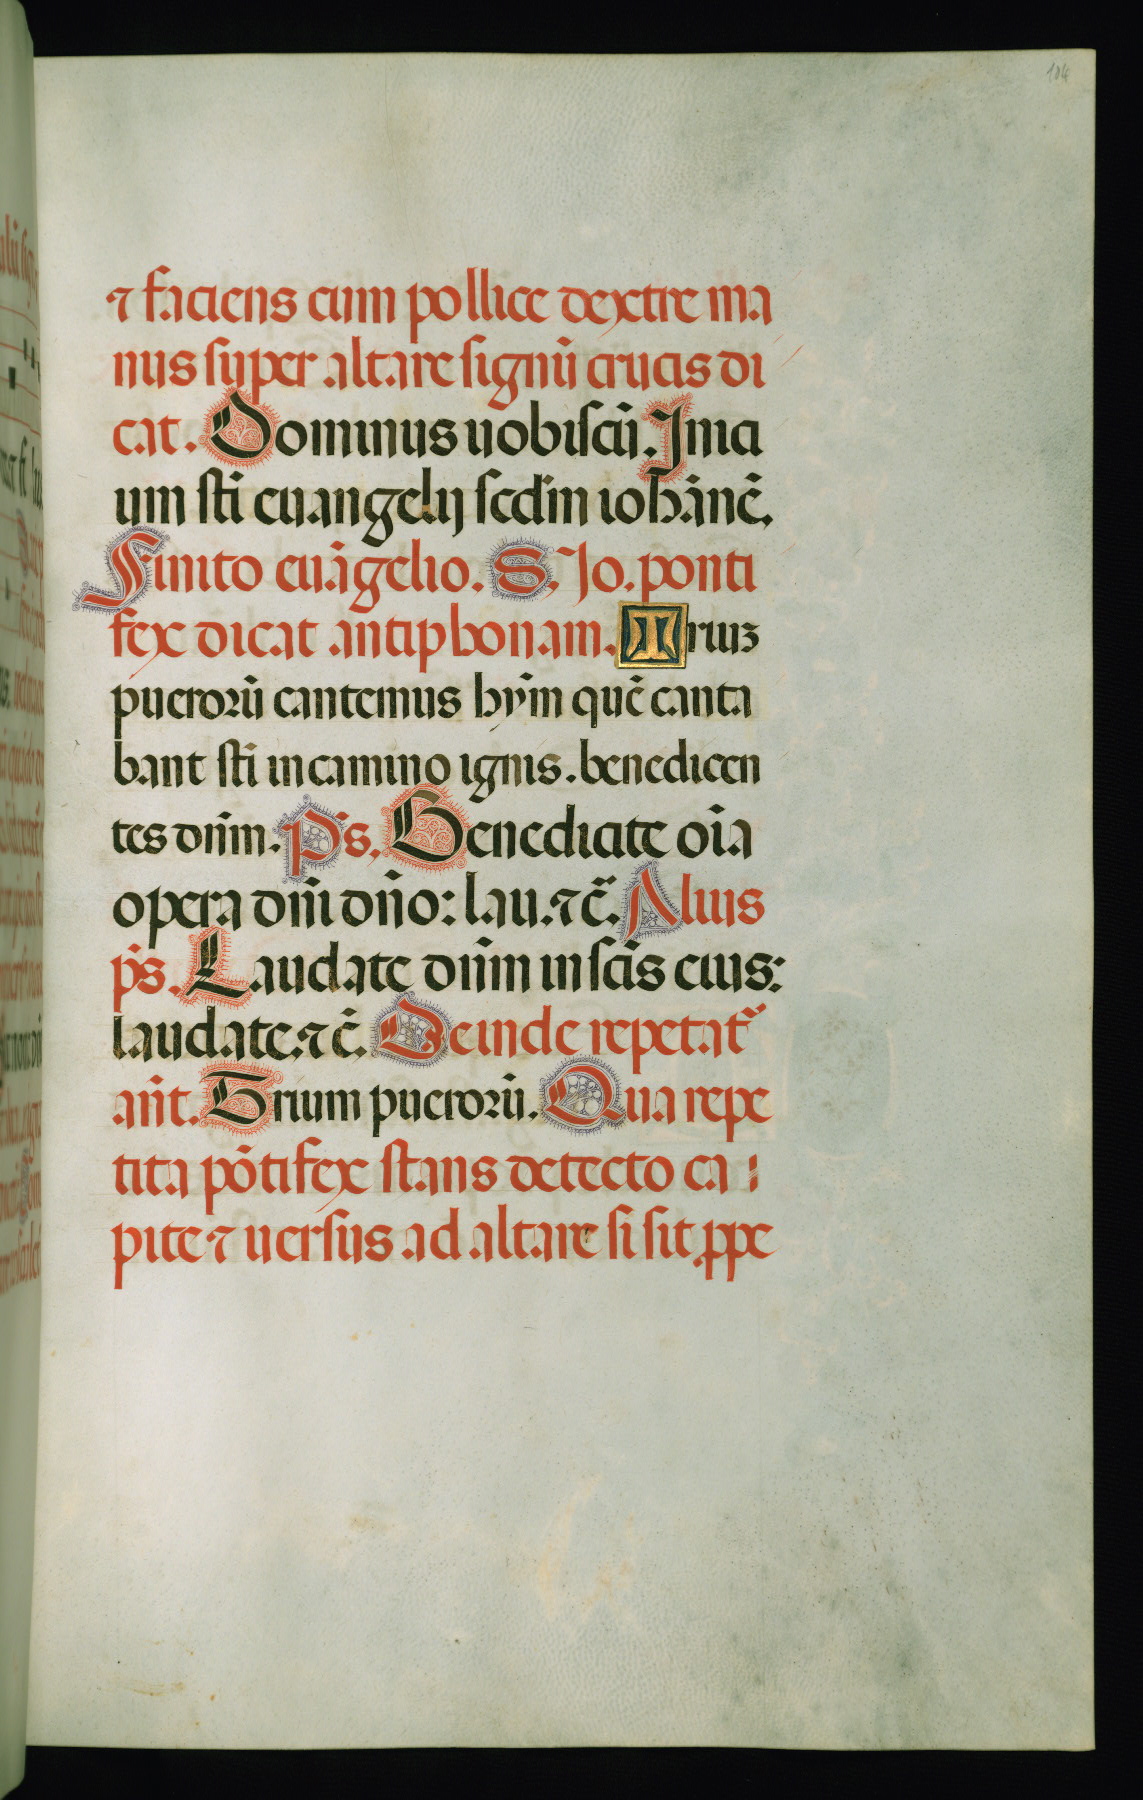 104
⁊ faciens cum pollice dextre ma
nus super altare signū crucis di
cat. Dominus uobiscū. Inici
um sti euangelij scdm iohānē.
Finito euāgelio. S. Jo. ponti
fex dicat antiphonam. Triuʒ
puerorū cantemus hym̄ quē canta
bant sti in camino ignis. benedicen
tes dn̄m. Ps. Benedicite oīa
opera dn̄i dn̄o: lau. ⁊ c̄. Alius
ps. Laudate dn̄m in scīs eius:
laudate. ⁊ c̄. Deinde repetat᷑
an̄t. Trium puerorū. Qua repe
tita pōtifex stans detecto ca
pite ⁊ uersus ad altare si sit ꝓpe